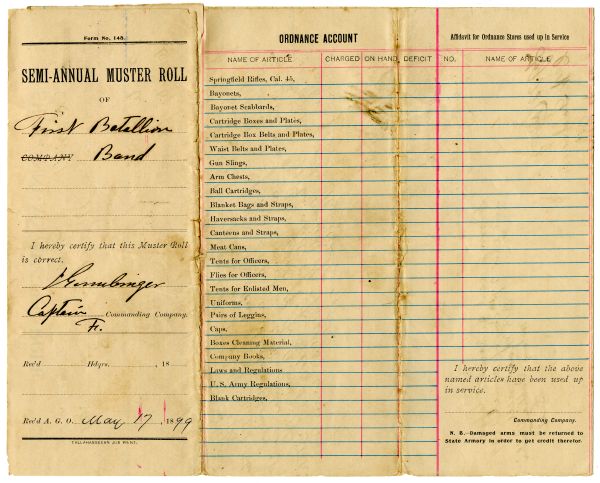 Form No. 148.
SEMI-ANNUAL MUSTER ROLL
OF
First Batallion
COMPANY Band
I hereby certify that this Muster Roll
is correct.
Captain Commanding Company.
F.
Rec'd Hdqrs. , 18
Rec'd A. G. O. May 17 , 1899
TALLAHASSEEAN JOB PRINT.
ORDNANCE ACCOUNT
NAME OF ARTICLE CHARGED ON HAND DEFICIT
Springfield Rifles, Cal. 45,
Bayonets,
Bayonet Scabbards,
Cartridge Boxes and Plates,
Cartridge Box Belts and Plates,
Waist Belts and Plates,
Gun Slings,
Arm Chests,
Ball Cartridges,
Blanket Bags and Straps,
Haversacks and Straps,
Canteens and Straps,
Meat Cans,
Tents for Officers,
Flies for Officers,
Tents for Enlisted Men,
Uniforms,
Pairs of Leggins,
Caps,
Boxes Cleaning Material,
Company Books,
Laws and Regulations
U. S. Army Regulations,
Blank Cartridges,
Affidavit for Ordnance Stores used up in Service
NO. NAME OF ARTICLE
I hereby certify that the above
named articles have been used up
in service.
Commanding Company.
N. B.—Damaged arms must be returned to
State Armory in order to get credit therefor.